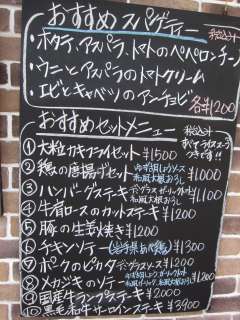 おすすめスパゲティー 税込
・ホタテ、アスパラ、トマトのペペロンチーノ
・ウニとアスパラのトマトクリーム
・エビとキャベツのアンチョビ 各¥1200
おすすめセットメニュー 税込
すべてライス、スープ
つきです!!
① 大粒カキフライセット ¥1500
② 鶏の唐揚げセット 和風大根おろし ¥1000
③ ハンバーグステーキ デミグラス 和風大根おろし ¥1100
④ 牛肩ロースのカットステーキ ¥1200
⑤ 豚の生姜焼き ¥1200
⑥ チキンソテー ¥1300
⑦ ポークのピカタ デミグラスソース ¥1200
⑧ メカジキのソテー 和風大根おろし ¥1200
⑨ 国産牛ランプステーキ ¥2000
⑩ 黒毛和牛サーロインステーキ ¥3900